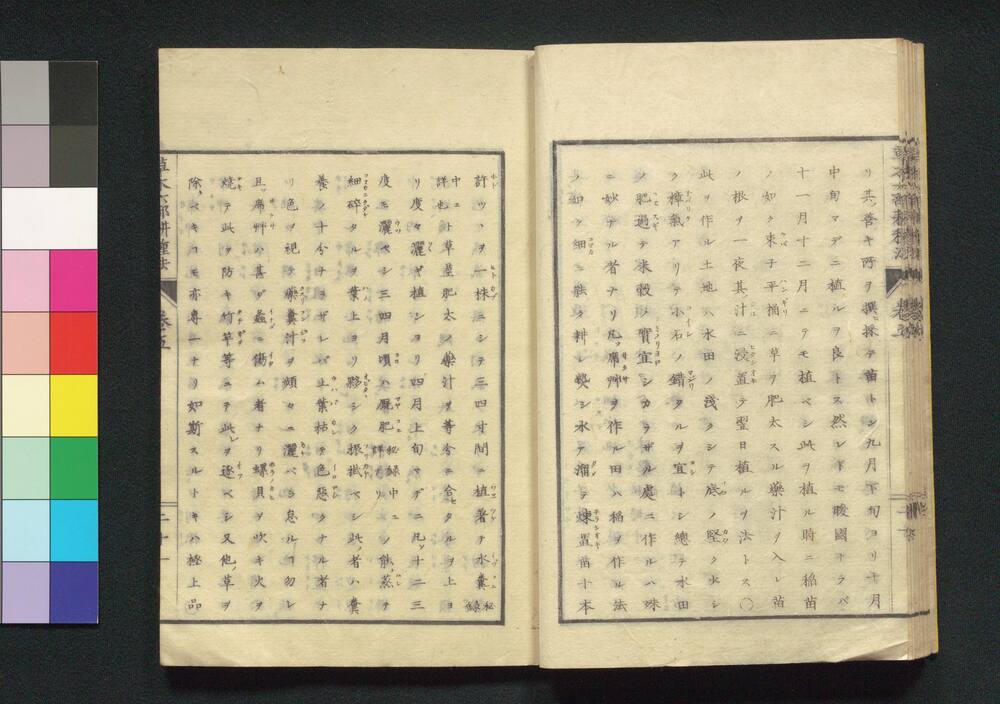 リ其善キ所ヲ撰採テ苗トシ九月下旬ヨリ十月
中旬マデニ植ルヲ良トス然レドモ暖國ナラバ
十一月十二月ニテモ植ベシ此ヲ植ル時ニ稲苗
ノ如ク束子平桶ニ草ヲ肥太スル藥汁ヲ入レ苗
ノ根ヲ一夜其汁ニ浸置テ翌日植ルヲ法トス〇
此ヲ作ル土地ハ水田ノ淺クシテ底ノ堅ク少シ
ク樟氣アリテ小石ノ錯タルヲ宜トシ總テ水田
ノ肥過テ米穀ノ實宜シカラザル處ニ作ルハ殊
ニ妙ナル者ナリ凡ソ席艸ヲ作ル田ハ稲ヲ作ル法
ノ如ク細ニ融ク耕シ耙シ水ヲ溜テ煉置苗十本
許ヅヽヲ一株ニシテ三四寸間ニ植者テ水糞秘録
中ニ詳也ト草莖肥太ノ藥汁ヲ等分ニ合セタルヲ上ヨ
リ度々灑ギ植シヨリ四月上旬マデニ凡ソ十二三
度モ灑ベシ三四月頃ハ厩肥秘録中ニ詳ナリノ能蒸テ
細碎タルヲ葉上ヨリ夥シク振掛ベシ此ノ者ハ糞
養ノ十分ナラザレバ上葉枯テ色惡クナル者ナ
リ色ヲ視テ藥糞汁ヲ頻々ニ灑ベシ怠ルコ勿レ
且ツ席艸ハ甚ダ蟲ニ傷ム者ナリ螺貝ヲ吹キ火ヲ
燒テ此ヲ防キ竹竿等ニテ此レヲ逐ベシ又他ノ草ヲ
除ベキコモ亦專一ナリ如斯スルトキハ極上品
草木六部耕種法
卷五
二十一